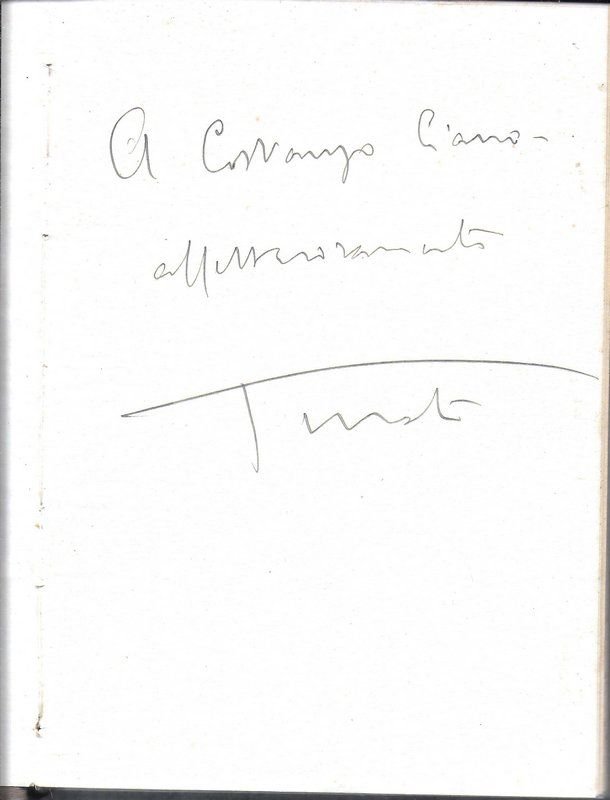 A Costanzo Ciano -
affettuosamente
Turati